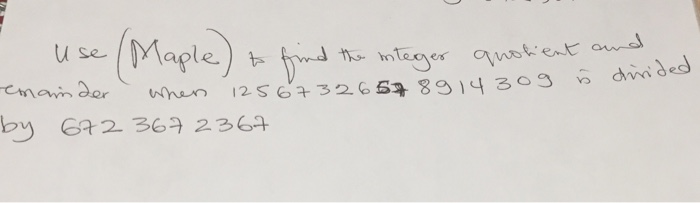 Use (Maple) to find the integer quotient and
remainder when 12567326578914309 is divided
by 6723672367